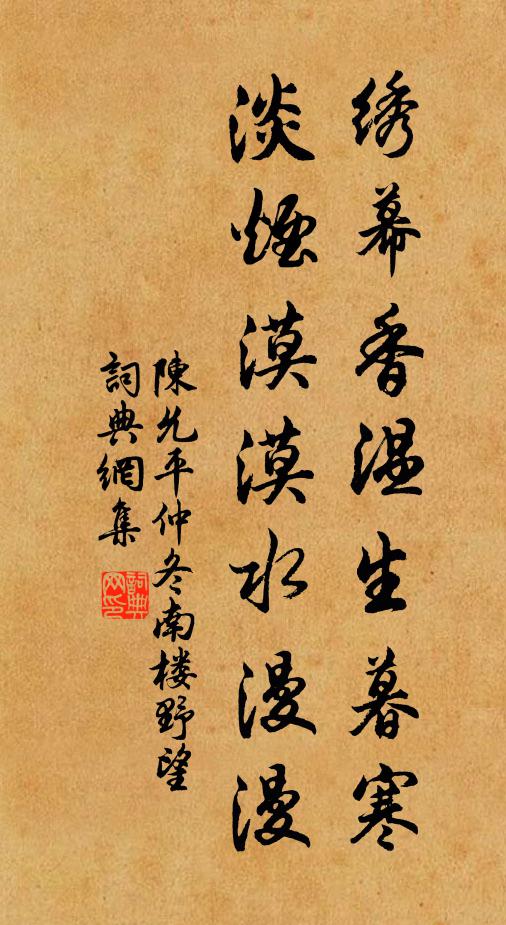 绣幕香温生暮寒
淡煙漠漠水漫漫
陳允平仲冬南楼野望
詞典網集
詞典
网印